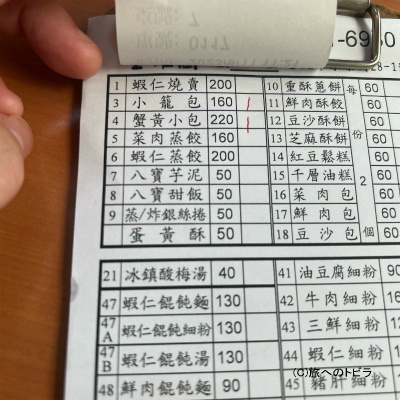 7
0117
-6980
28-1
1 蝦仁燒賣 200
3 小籠包 160
4 蟹黃小包 220
5 菜肉蒸餃 160
6 蝦仁蒸餃 200
7 八寶芋泥 50
8 八寶甜飯 50
9 蒸/炸銀絲捲 50
蛋黃酥 50
10 重酥蔥餅 60
11 鮮肉酥餃 60
12 豆沙酥餅 60
13 芝麻酥餅 60
14 紅豆鬆糕 60
15 千層油糕 60
16 菜肉包 60
17 鮮肉包 60
18 豆沙包 60
每份2個
21 冰鎮酸梅湯 40
47 蝦仁餛飩麵 130
47A 蝦仁餛飩細粉 130
47B 蝦仁餛飩湯 130
48 鮮肉餛飩麵 90
41 油豆腐細粉 90
42 牛肉細粉 16
43 三鮮細粉 1
44 蝦仁細粉 1
45 豬肝細粉
(C)旅へのトビラ